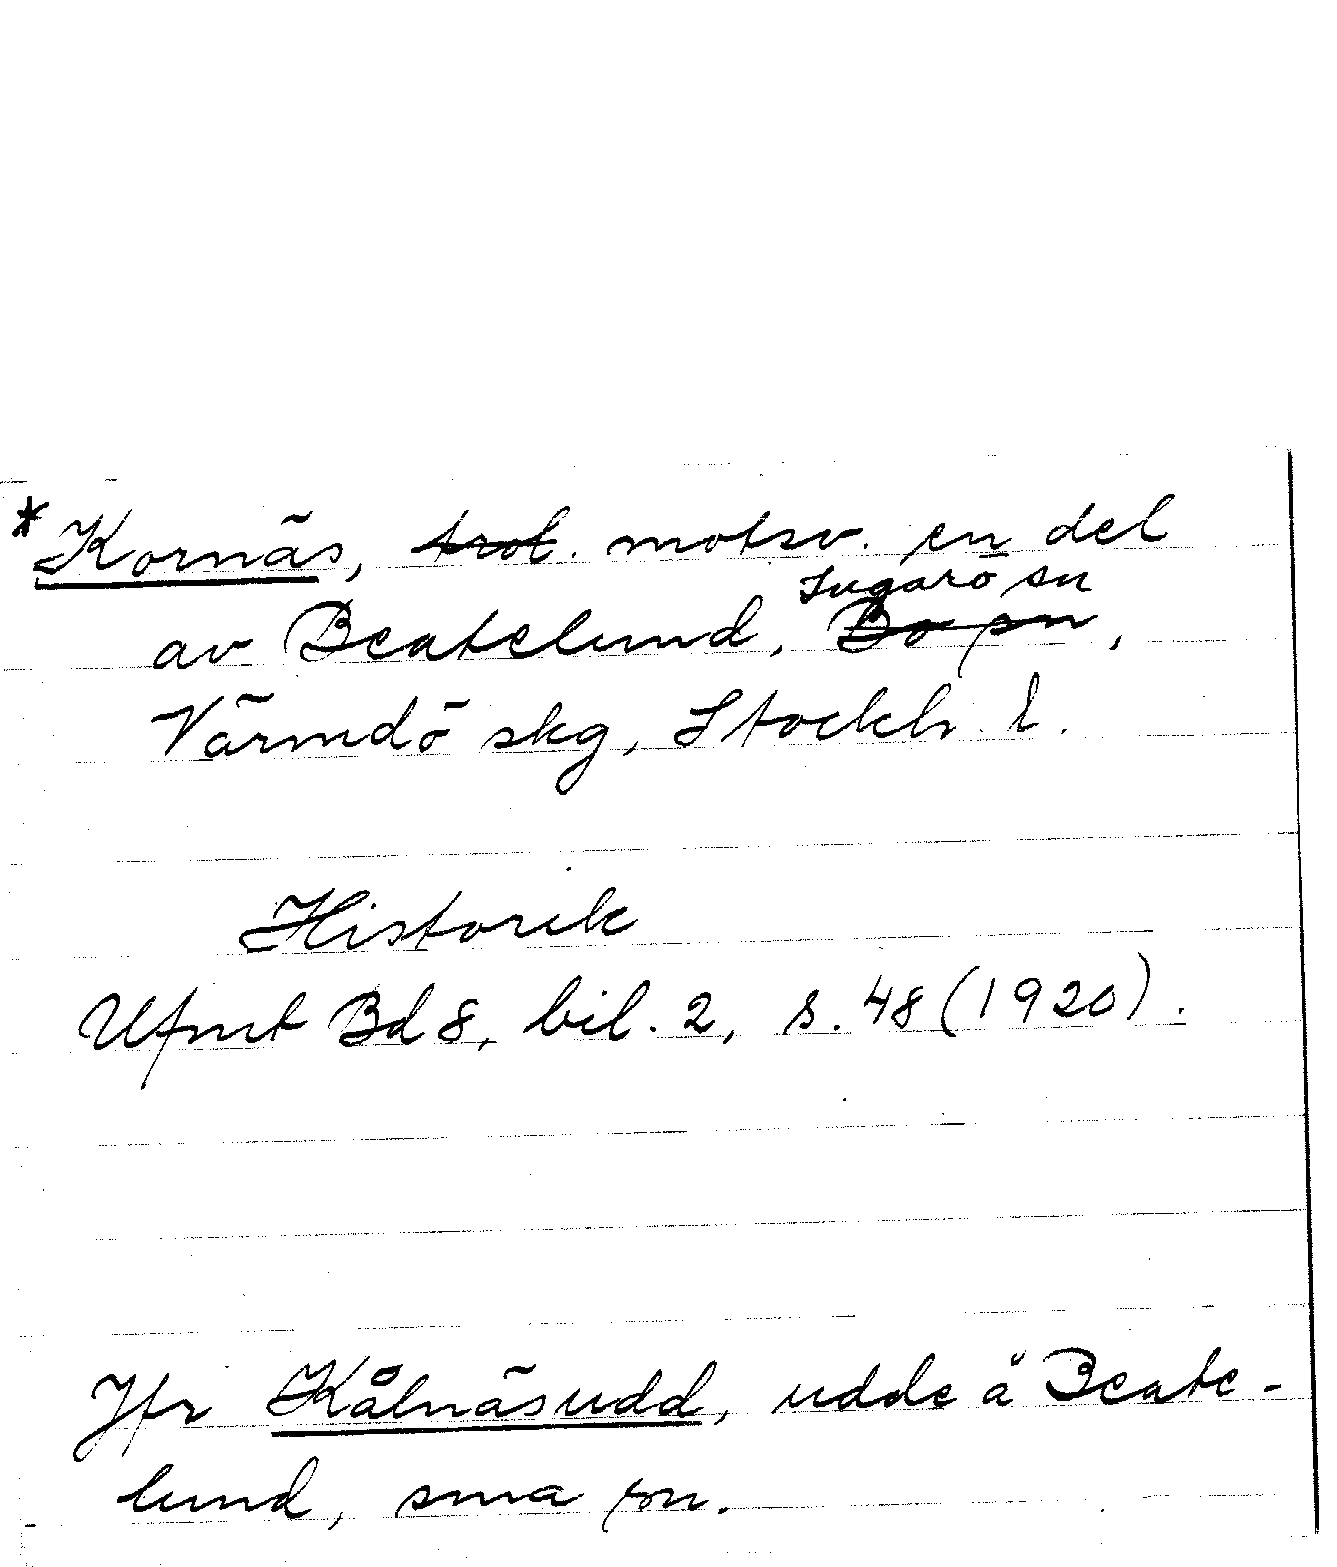 *Kornäs, trol. motsv. en del
Ingarö sn
av Beatelund, Bo sn,
Värmdö skg, Stockh. l.
Historik
Ufmt Bd 8, bil. 2, s. 48 (1920).
Jfr Kålnäsudd, udde å Beate-
lund, sma sn.